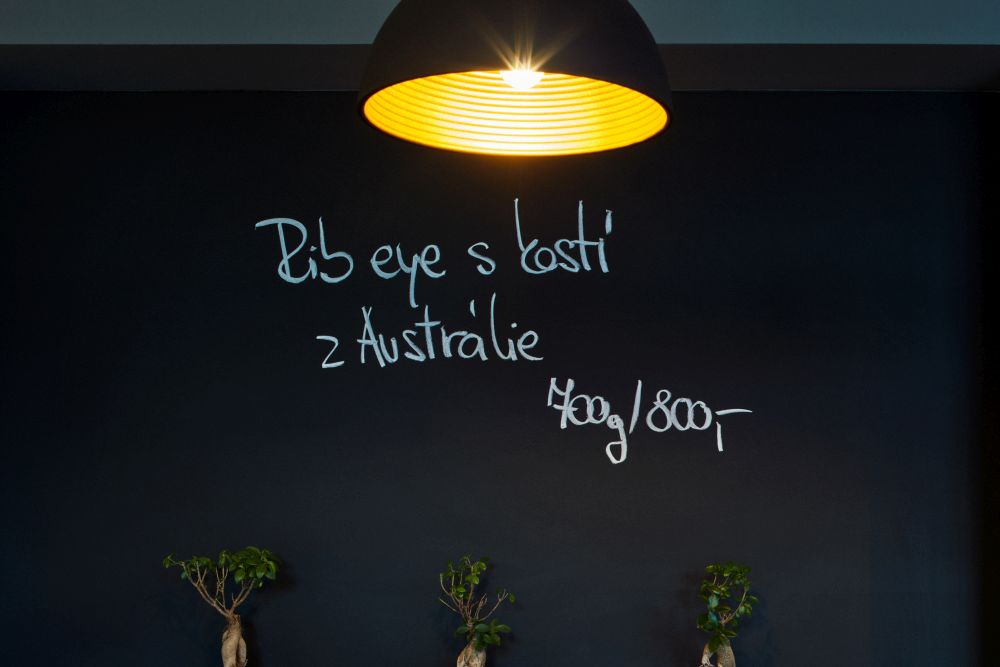 Rib eye s kostí
z Austrálie
700g/800,-